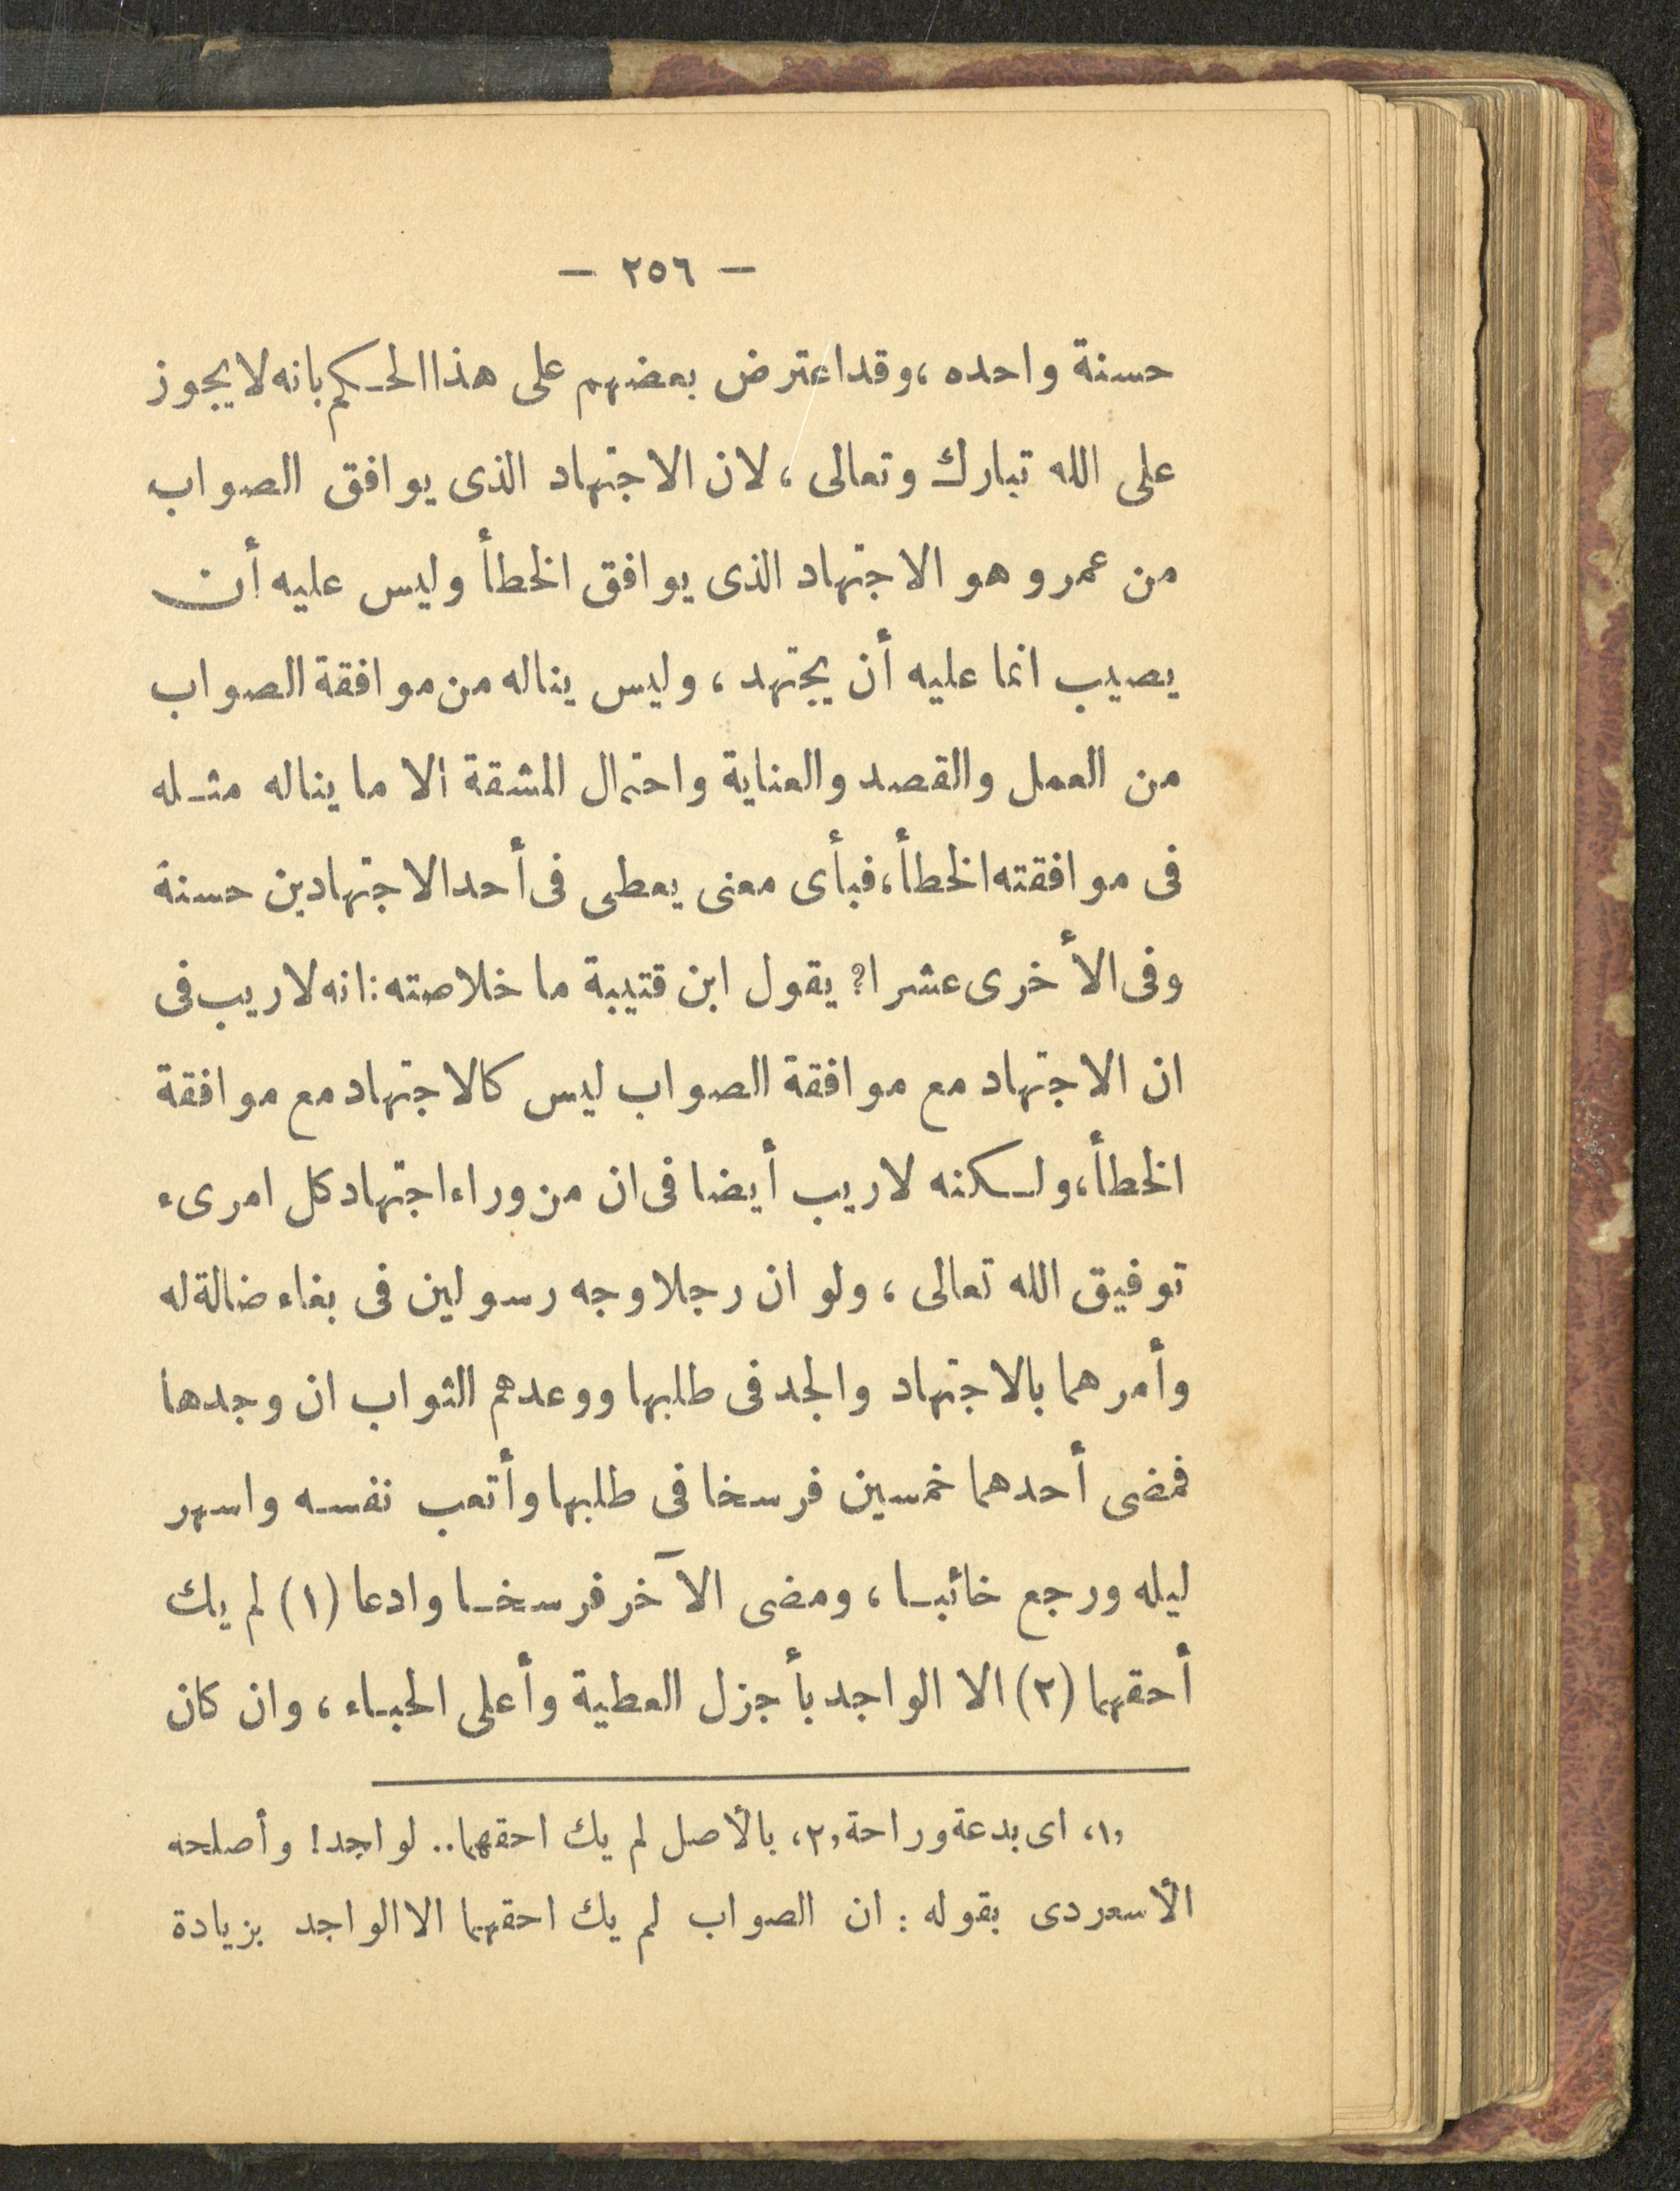 — ٢٥٦ —
حسنة واحده ، وقد اعترض بعضهم على هذا الحكم بانه لا يجوز
على الله تبارك وتعالى ، لان الاجتهاد الذى يوافق الصواب
من عمرو هو الاجتهاد الذى يوافق الخطأ وليس عليه أن
يصيب انما عليه أن يجتهد ، وليس يناله من موافقة الصواب
من العمل والقصد والعناية واحتمال المشقة الا ما يناله مثله
فى موافقته الخطأ ، فبأى معنى يعطى فى أحد الاجتهادين حسنة
وفى الأخرى عشرا؟ يقول ابن قتيبة ما خلاصته : انه لا ريب فى
ان الاجتهاد مع موافقة الصواب ليس كالاجتهاد مع موافقة
الخطأ ، ولكنه لا ريب أيضا فى ان من وراء اجتهاد كل امرىء
توفيق الله تعالى ، ولو ان رجلا وجه رسولين فى بغاء ضالة له
وأمرهما بالاجتهاد والجد فى طلبها ووعدهم الثواب ان وجدها
فمضى أحدهما خمسين فرسخا فى طلبها وأتعب نفسه واسهر
ليله ورجع خائبا ، ومضى الآخر فرسخا وادعا (١) لم يك
أحقهما (٢) الا الواجد بأجزل العطية وأعلى الحباء ، وان كان
«١» اى بدعة وراحة «٢» بالأصل لم يك احقهما .. لواجد! وأصلحه
الأسعردى بقوله : ان الصواب لم يك احقهما الا الواجد بزيادة